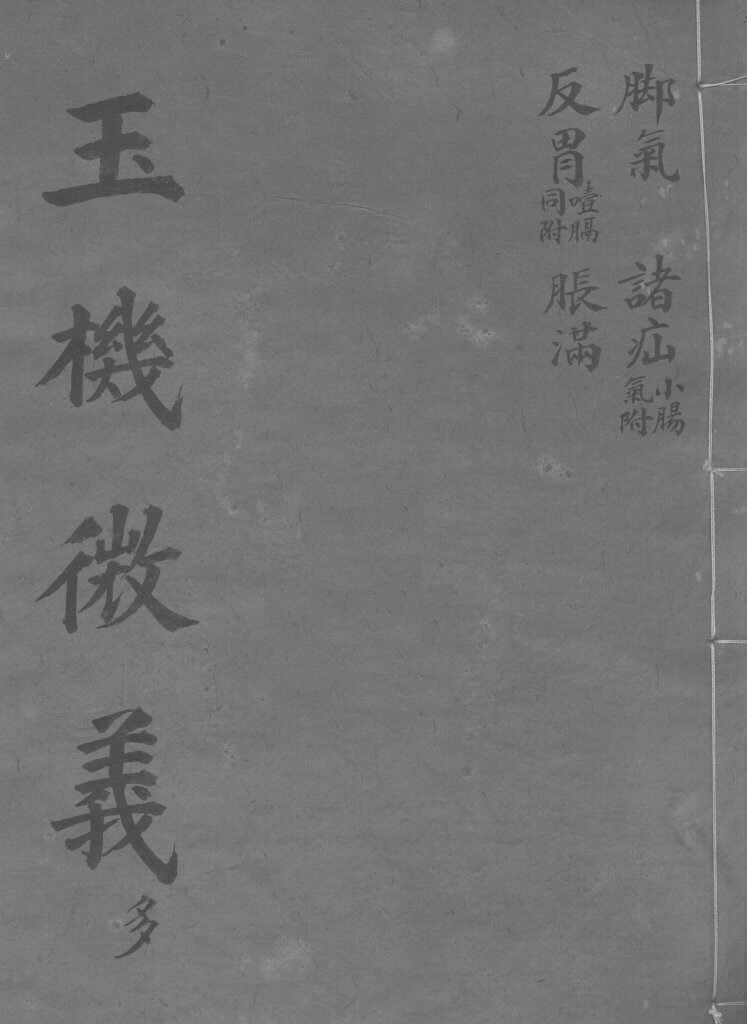 脚氣 諸疝 小腸氣附
反胃 噎膈同附 脹滿
玉機微義 多